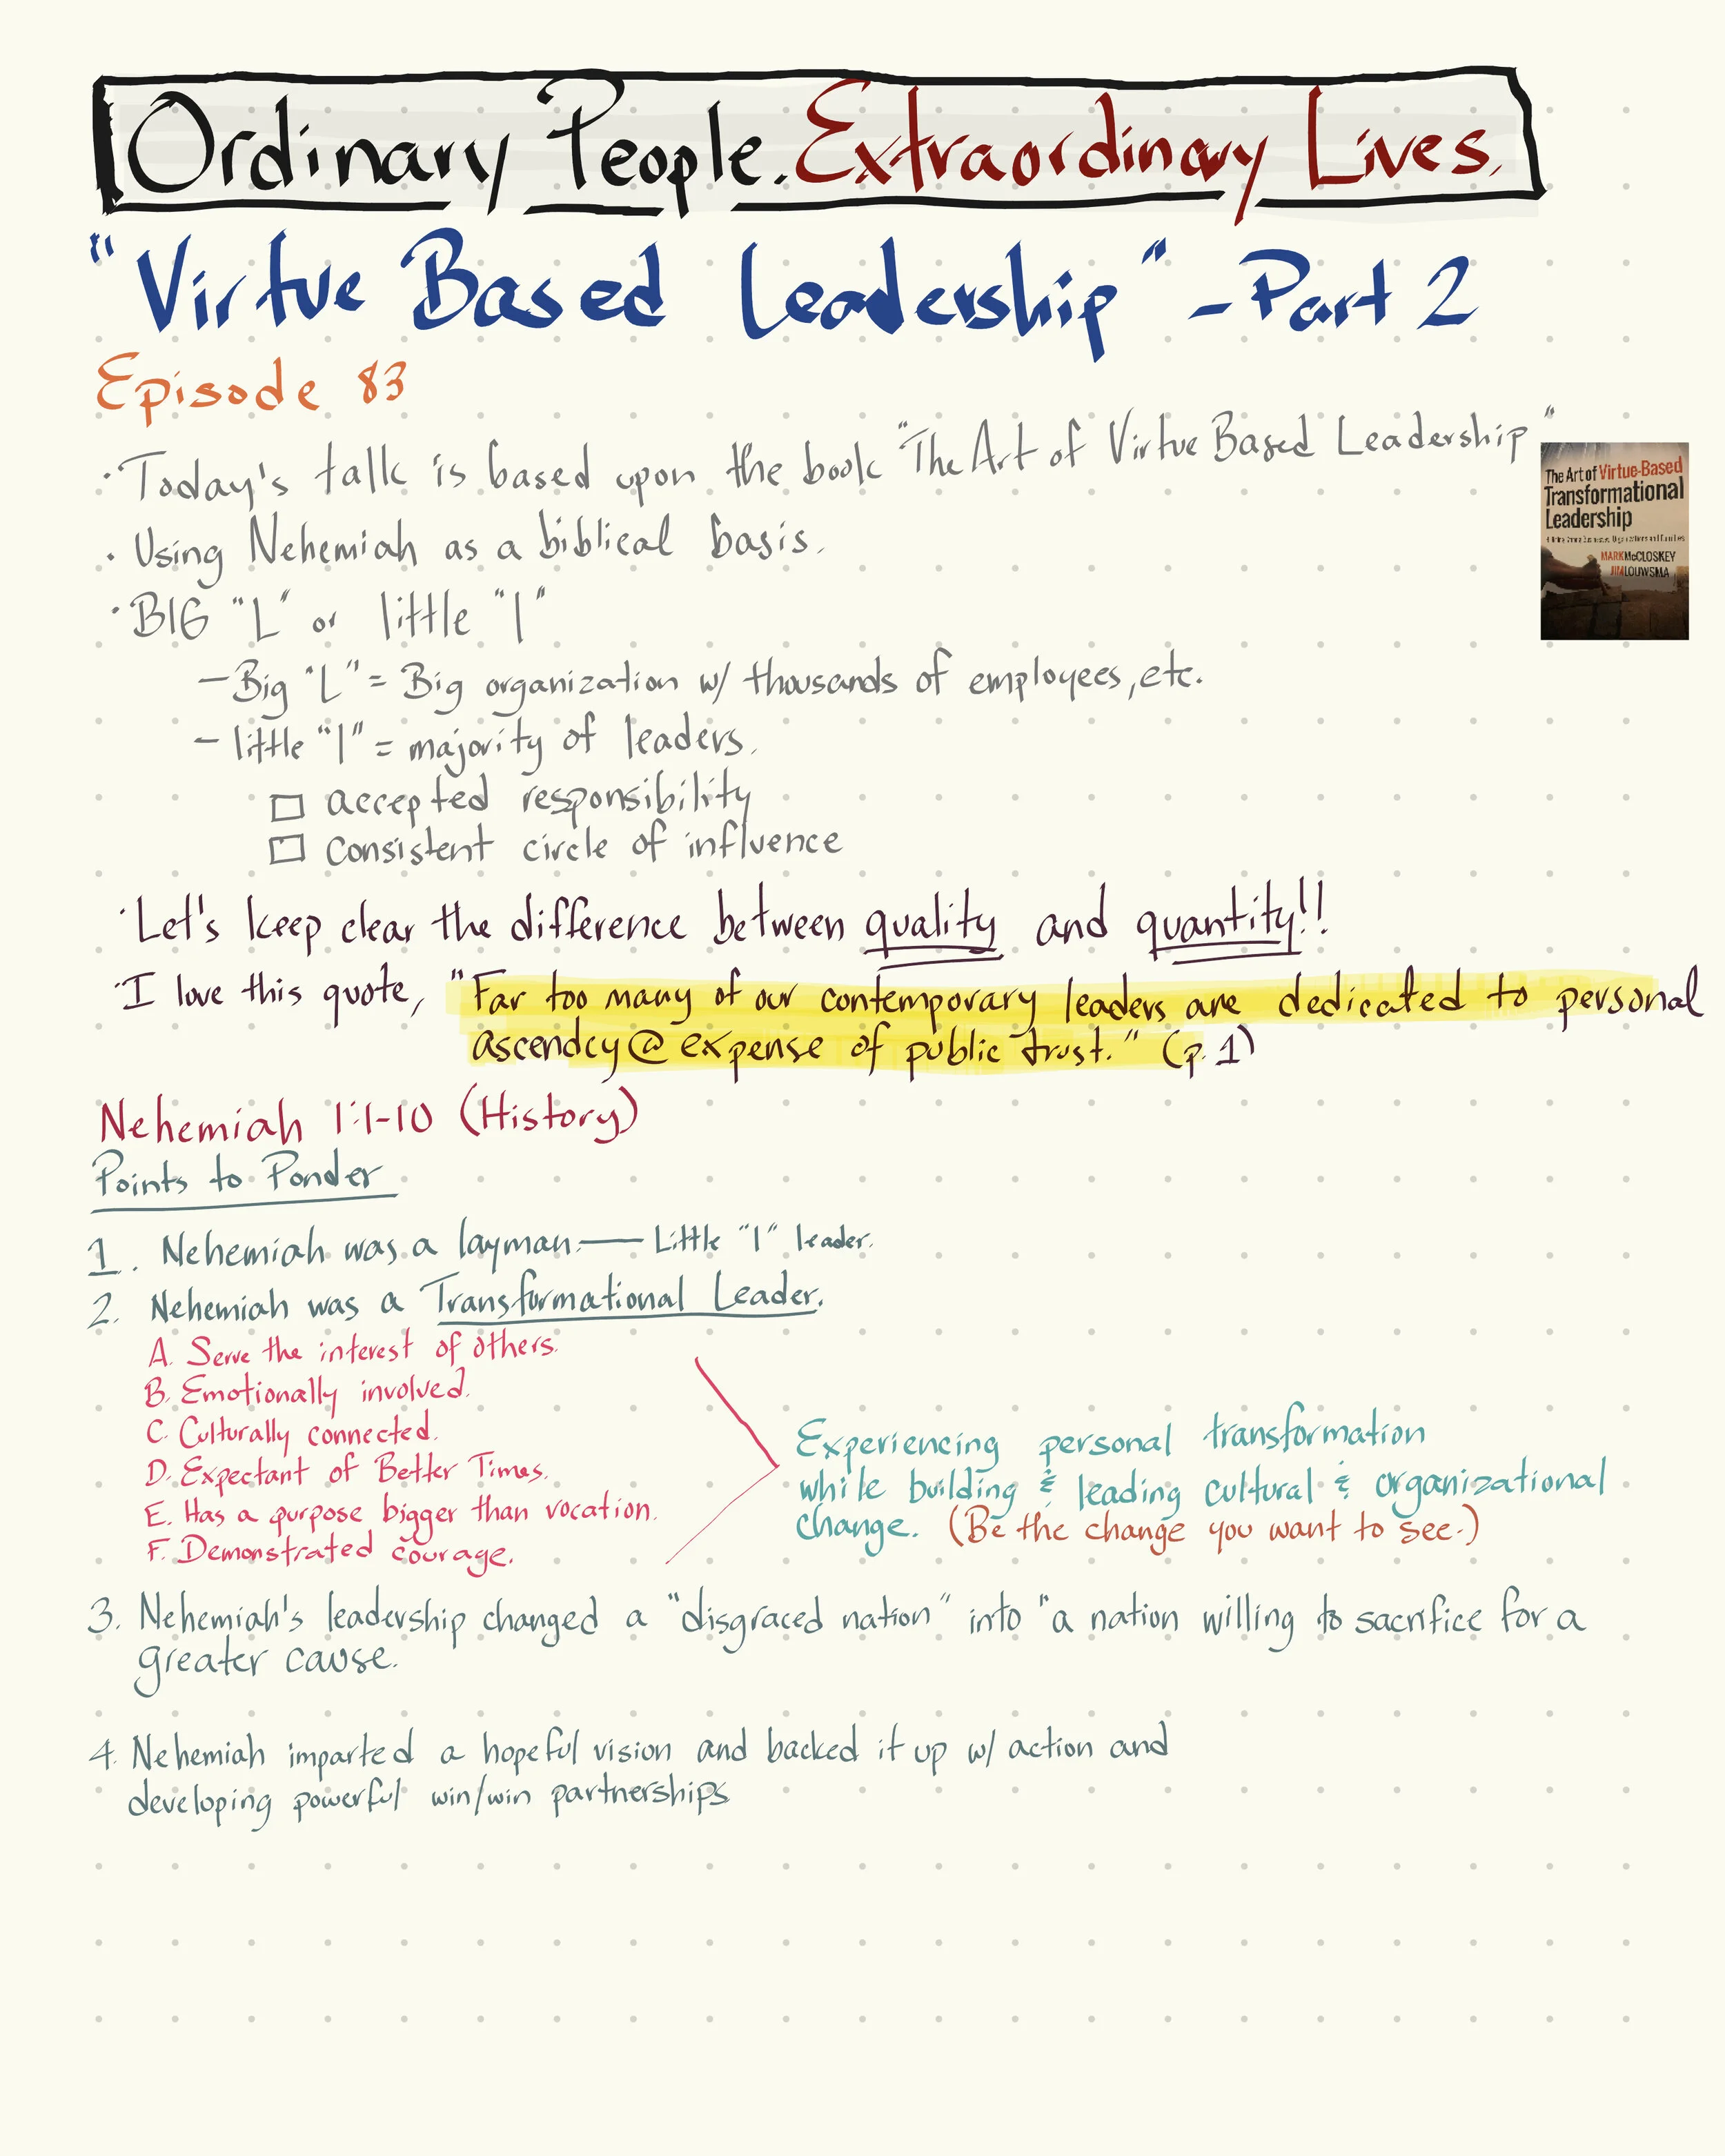 Ordinary People. Extraordinary Lives.
"Virtue Based Leadership" - Part 2
Episode 83
· Today's talk is based upon the book "The Art of Virtue Based Leadership"
The Art of Virtue-Based
Transformational
Leadership
MARK McCLOSKEY
JIM LOUWSMA
· Using Nehemiah as a biblical basis.
· BIG "L" or little "l"
- Big "L" = Big organization w/ thousands of employees, etc.
- little "l" = majority of leaders.
□ accepted responsibility
□ consistent circle of influence
· Let's keep clear the difference between quality and quantity!!
· I love this quote, "Far too many of our contemporary leaders are dedicated to personal
ascendcy @ expense of public trust." (p. 1)
Nehemiah 1:1-10 (History)
Points to Ponder
1. Nehemiah was a layman. — Little "l" leader.
2. Nehemiah was a Transformational Leader.
A. Serve the interest of others.
B. Emotionally involved.
C. Culturally connected.
D. Expectant of Better Times.
E. Has a purpose bigger than vocation.
F. Demonstrated courage.
Experiencing personal transformation
while building & leading cultural & organizational
change. (Be the change you want to see.)
3. Nehemiah's leadership changed a "disgraced nation" into "a nation willing to sacrifice for a
greater cause.
4. Nehemiah imparted a hopeful vision and backed it up w/ action and
developing powerful win/win partnerships